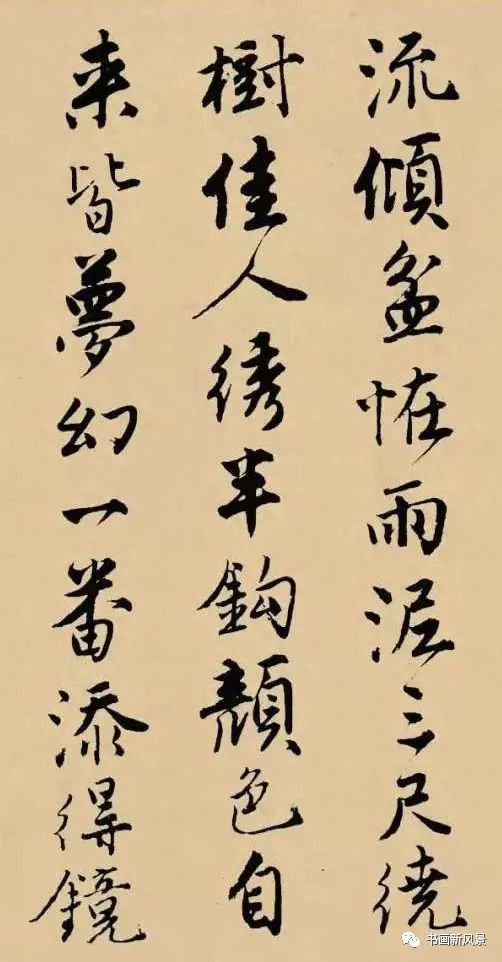 流傾盆恠雨泥三尺繞
樹佳人綉半鈎顏色自
來皆夢幻一番添得鏡
书画新风景